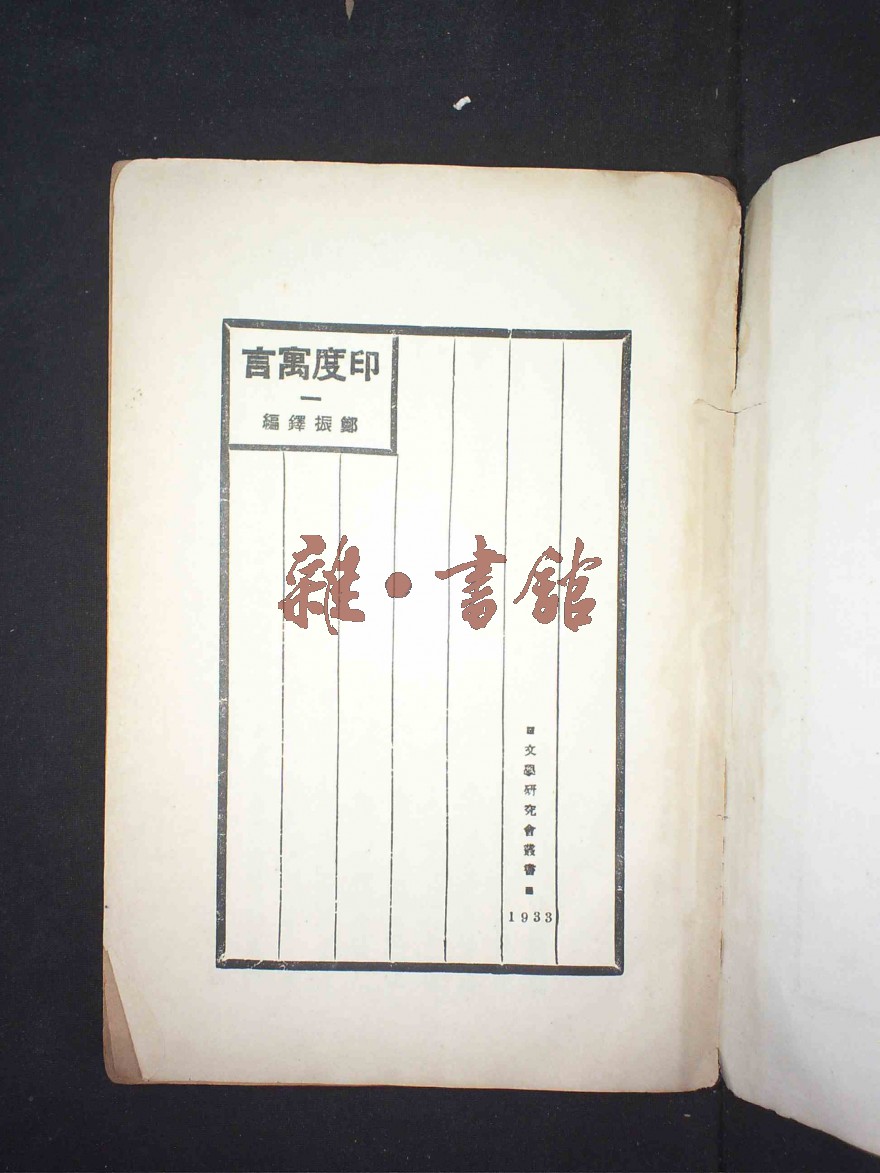 印度寓言
一
鄭振鐸編
雜·書館
文學研究會叢書
1933